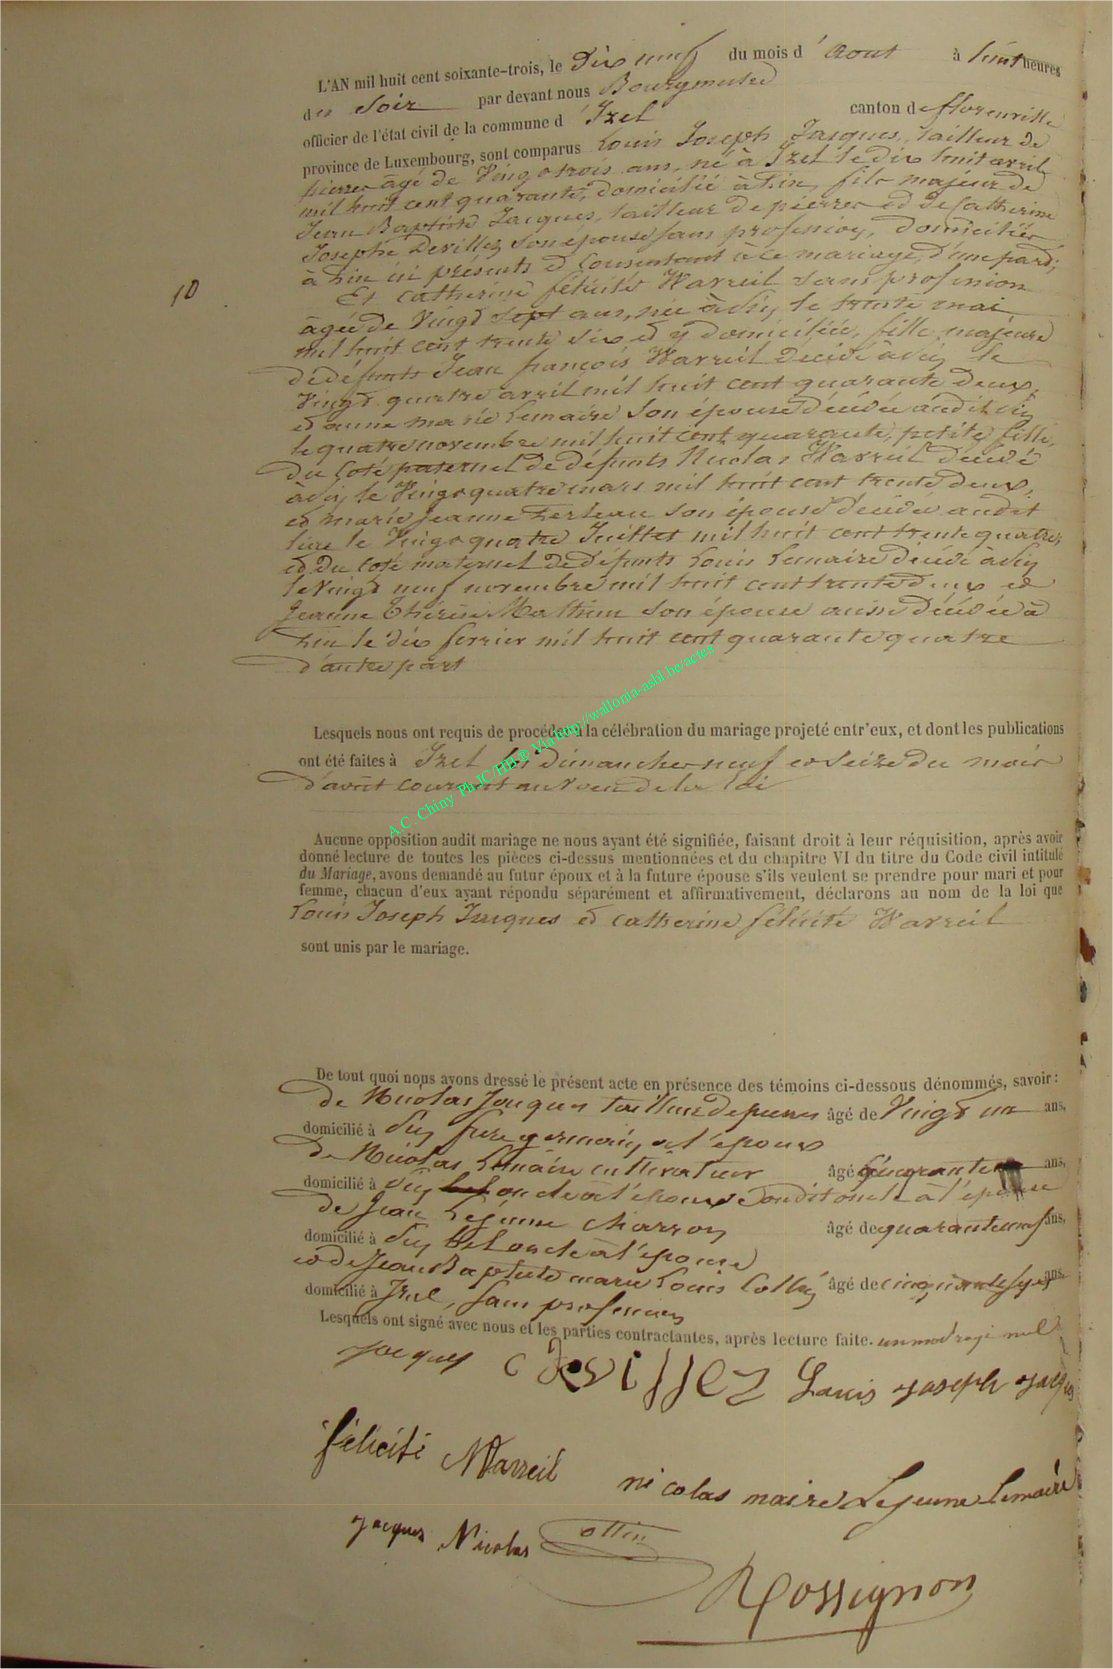 L'AN mil huit cent soixante-trois, le Dix neuf du mois d'aout à huit heures
du soir par devant nous Bourgmestre
officier de l'état civil de la commune d'Izel canton de florenville
province de Luxembourg, sont comparus Louis Joseph Jacques, tailleur de
pierres âgé de Vingt trois ans, né à Izel le dix huit avril
mil huit cent quarante, domicilié à Pin, fils majeur de
Jean Baptiste Jacques, tailleur de pierres et de Catherine
Josephe Devillez son épouse sans profession, domiciliés
à Pin ici présents et consentant à ce mariage, d'une part;
10
Et catherine félicité Warzeil sans profession
âgée de Vingt sept ans, née à le trente mai
mil huit cent trente six et y domiciliée, fille majeure
de défunts Jean françois Warzeil décédé à le
Vingt quatre avril mil huit cent quarante deux,
et anne marie Lemaire son épouse décédée audit
le quatre novembre mil huit cent quarante, petite fille,
du coté paternel de défunts Nicolas Warzeil décédé
à le Vingt quatre mars mil huit cent trente deux,
et marie jeanne son épouse décédée audit
lieu le Vingt quatre Juillet mil huit cent trente quatre,
et du coté maternel de défunts Louis Lemaire décédé à
le Vingt neuf novembre mil huit cent trente deux et
Jeanne Thérèse Mathieu son épouse aussi décédée à
Pin le dix fevrier mil huit cent quarante quatre
d'autre part
Lesquels nous ont requis de procéder à la célébration du mariage projeté entr'eux, et dont les publications
ont été faites à Izel les dimanches neuf et seize du mois
d'août courant au voeu de la loi
A.C. Chiny Ph.JC/HB® Via http://wallonia-asbl.be/actes
Aucune opposition audit mariage ne nous ayant été signifiée, faisant droit à leur réquisition, après avoir
donné lecture de toutes les pièces ci-dessus mentionnées et du chapitre VI du titre du Code civil intitulé
du Mariage, avons demandé au futur époux et à la future épouse s'ils veulent se prendre pour mari et pour
femme, chacun d'eux ayant répondu séparément et affirmativement, déclarons au nom de la loi que
Louis Joseph Jacques et catherine félicité Warzeil
sont unis par le mariage.
De tout quoi nous avons dressé le présent acte en présence des témoins ci-dessous dénommés, savoir :
de Nicolas Jacques tailleur de pierres âgé de Vingt un ans,
domicilié à frere germain à l'epoux
de Nicolas Lemaire cultivateur âgé cinquante ans,
domicilié à oncle à l'epouse
de Jean Lejeune charron âgé de quarante neuf ans,
domicilié à bel oncle à l'epouse
et de Jean Baptiste marie Louis Collin âgé de cinquante sept ans
domicilié à Izel, sans profession
Lesquels ont signé avec nous et les parties contractantes, après lecture faite. un mot rayé nul
Jacques C Devillez Louis joseph jacques
félicité Warzeil nicolas maire Lejeune Lemaire
jacques Nicolas Collin
Rossignon